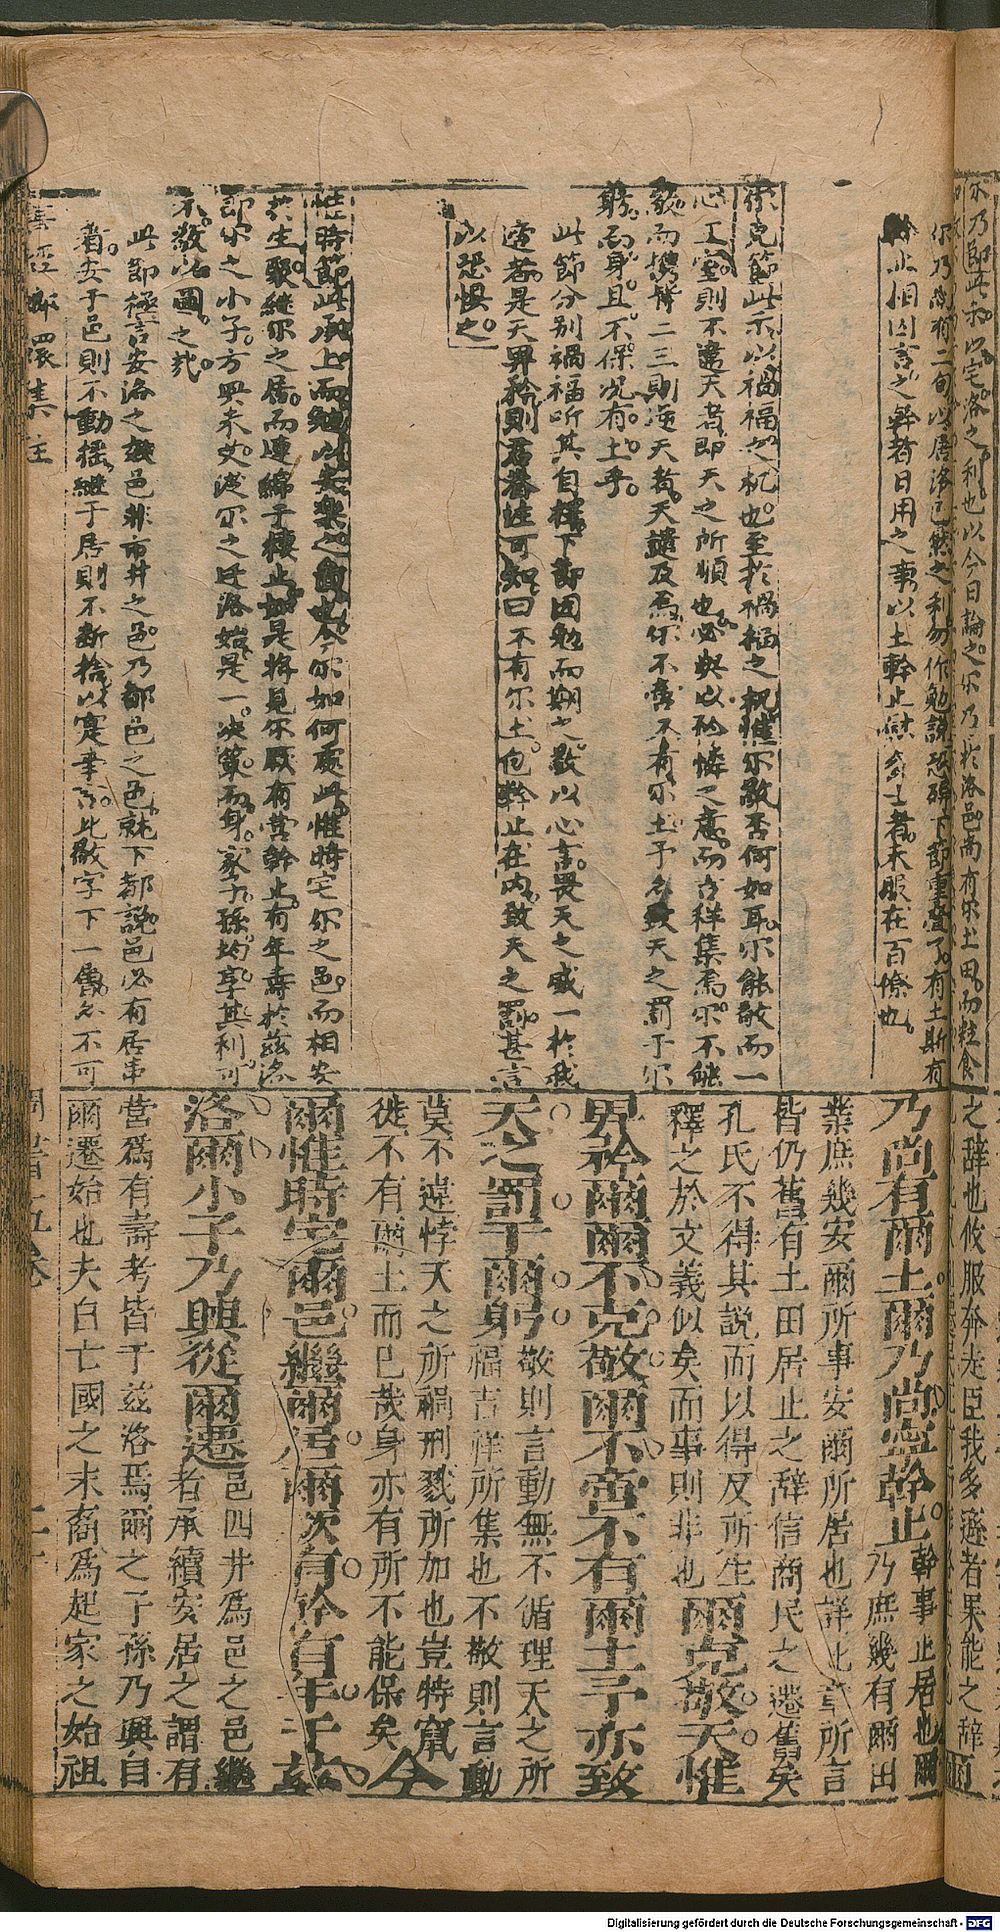 尔乃節此示以宅洛之利也以今日論之尔乃於洛邑尚有尔土田而粒食
尔乃緫有二句以居洛已然之利勿作勉說恐碍下節重叠了有土斯有
幹止相因言之幹者日用之事以土幹止慰多士者未服在百僚也
尔克節此示以禍福之机也至於禍福之机惟尔敬否何如耳尔能敬而一
心工室則不違天者即天之所順也必與以矜憐之意而吉祥集焉尔不能
敬而携貳二三則逆天者天譴及焉尔不啻不有尔土予亦致天之罰于尔
躬而身且不保况有土乎
此節分別禍福听其自擇下節因勉而期之敬以心言畏天之威一於我
室者是天畀矜則君眷性可知曰不有尔土包幹止在內致天之罰甚言
以恐惧之
惟時節此承上而勉以安樂之圖也今尔如何處此惟時宅尔之邑而相安
於生聚繼尔之居而連綿于棲止如是將見尔厥有营幹止有年壽於茲洛
即尔之小子方興未艾從尔之迁洛始是一决策而身家子孫均享其利可
不敬以圖之哉
此節極言安洛之效邑非市井之邑乃都邑之邑就下都說邑必有居串
看安于邑則不動揺継于居則不断捨以寔幸言比敬字下一層亦不可
之辭也攸服奔走臣我多遜者果能之辭爾
乃尚有爾土爾乃尚寧幹止幹事止居也爾乃庶幾有爾田
業庶幾安爾所事安爾所居也詳此章所言
皆仍舊有土田居止之辭信商民之遷舊矣
孔氏不得其說而以得反所生
釋之於文義似矣而事則非也爾克敬天惟
畀矜爾爾不克敬爾不啻不有爾土予亦致
天之罰于爾躬敬則言動無不循理天之所福吉祥所集也不敬則言動
莫不違悖天之所禍刑戮所加也豈特竄
徙不有爾土而已哉身亦有所不能保矣今
爾惟時宅爾邑繼爾居爾厥有幹有年于茲
洛爾小子乃興從爾遷邑四井爲邑之邑繼者承續安居之謂有
營爲有壽考皆于茲洛焉爾之子孫乃興自
爾遷始也夫自亡國之末裔爲起家之始祖
Digitalisierung gefördert durch die Deutsche Forschungsgemeinschaft - DFG